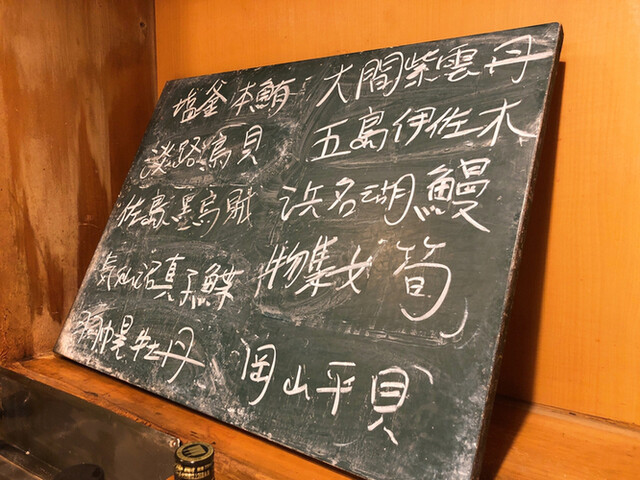 塩釜 本鮪 大間紫雲丹
淡路鳥貝 五島伊佐木
佐島墨烏賊 浜名湖鰻
気仙沼真子鰈 物集女筍
羽幌牡丹 岡山平貝